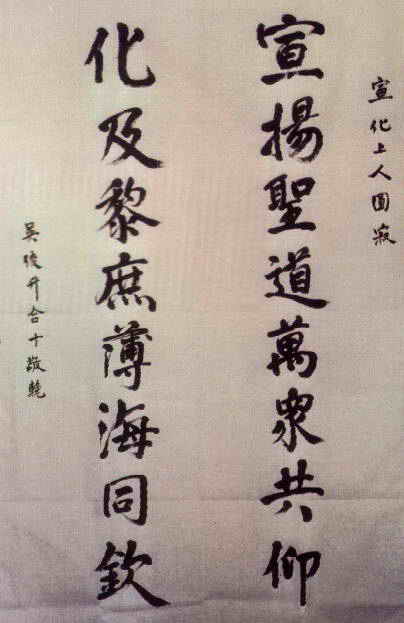 宣化上人圓寂
宣揚聖道萬衆共仰
化及黎庶薄海同欽
吳俊升合十敬輓